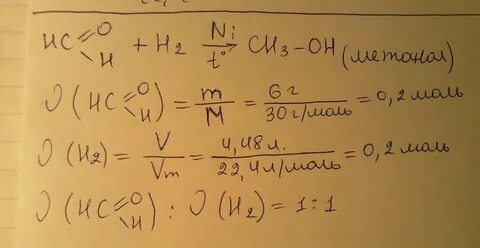 HC=O H + H₂ Ni → t° CH₃-OH (метанол)
ν (HC=O H) = m/M = 6 г / 30 г/моль = 0,2 моль
ν (H₂) = V/Vm = 4,48 л. / 22,4 л/моль = 0,2 моль
ν (HC=O H) : ν (H₂) = 1:1